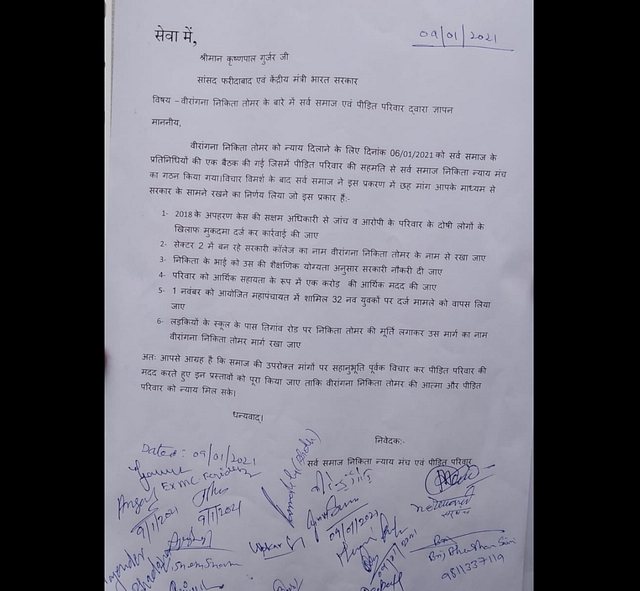 सेवा में,
09/01/2021
श्रीमान कृष्णपाल गुर्जर जी
सांसद फरीदाबाद एवं केंद्रीय मंत्री भारत सरकार
विषय – वीरांगना निकिता तोमर के बारे में सर्व समाज एवं पीड़ित परिवार द्वारा ज्ञापन
माननीय,
वीरांगना निकिता तोमर को न्याय दिलाने के लिए दिनांक 06/01/2021 को सर्व समाज के
प्रतिनिधियों की एक बैठक की गई जिसमें पीड़ित परिवार की सहमति से सर्व समाज निकिता न्याय मंच
का गठन किया गया।विचार विमर्श के बाद सर्व समाज ने इस प्रकरण में छह मांग आपके माध्यम से
सरकार के सामने रखने का निर्णय लिया जो इस प्रकार हैं:-
1- 2018 के अपहरण केस की सक्षम अधिकारी से जांच व आरोपी के परिवार के दोषी लोगों के
खिलाफ मुकदमा दर्ज कर कार्रवाई की जाए
2- सेक्टर 2 में बन रहे सरकारी कॉलेज का नाम वीरांगना निकिता तोमर के नाम से रखा जाए
3- निकिता के भाई को उस की शैक्षणिक योग्यता अनुसार सरकारी नौकरी दी जाए
4- परिवार को आर्थिक सहायता के रूप में एक करोड़ की आर्थिक मदद की जाए
5- 1 नवंबर को आयोजित महापंचायत में शामिल 32 नव युवकों पर दर्ज मामले को वापस लिया
जाए
6- लड़कियों के स्कूल के पास तिगांव रोड पर निकिता तोमर की मूर्ति लगाकर उस मार्ग का नाम
वीरांगना निकिता तोमर मार्ग रखा जाए
अतः आपसे आग्रह है कि समाज की उपरोक्त मांगों पर सहानुभूति पूर्वक विचार कर पीड़ित परिवार की
मदद करते हुए इन प्रस्तावों को पूरा किया जाए ताकि वीरांगना निकिता तोमर की आत्मा और पीड़ित
परिवार को न्याय मिल सके।
धन्यवाद।
निवेदक:-
सर्व समाज निकिता न्याय मंच एवं पीड़ित परिवार
Dated: 09/01/2021
EXMC
9/1/2021
9/1/2021
09/01/2021
09/01/2021
9811337119